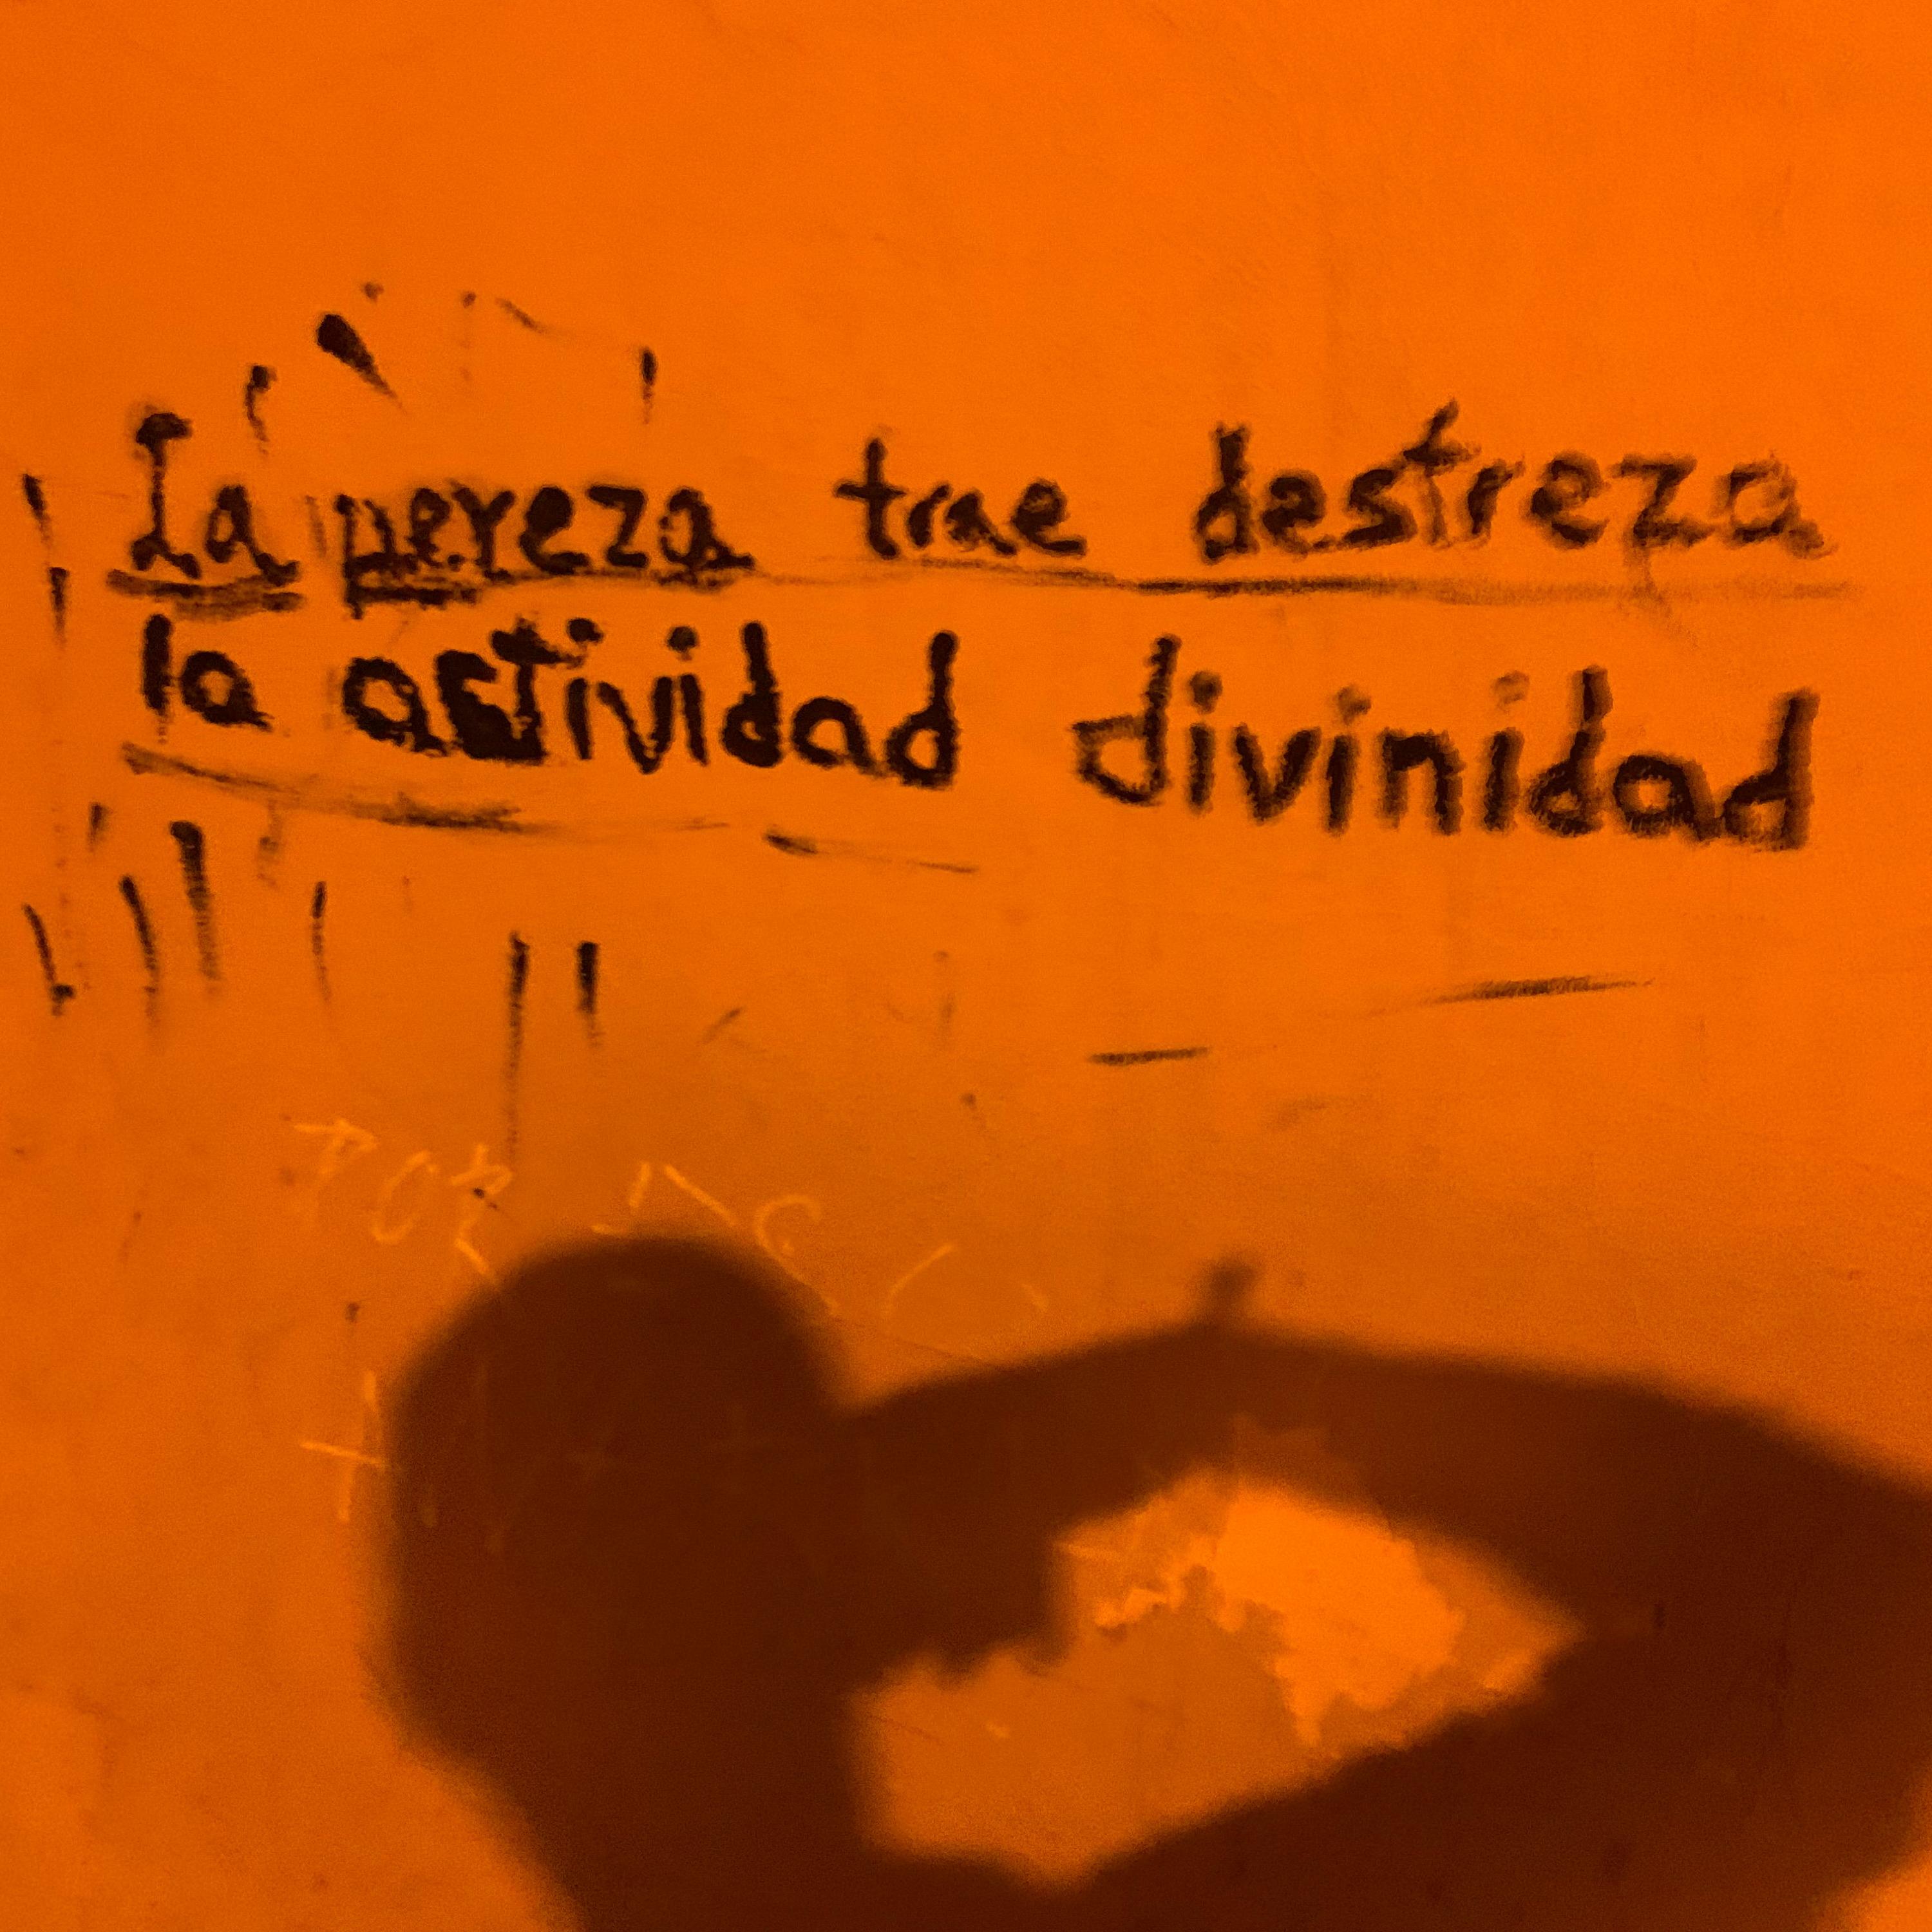 La pereza trae destreza
la actividad divinidad